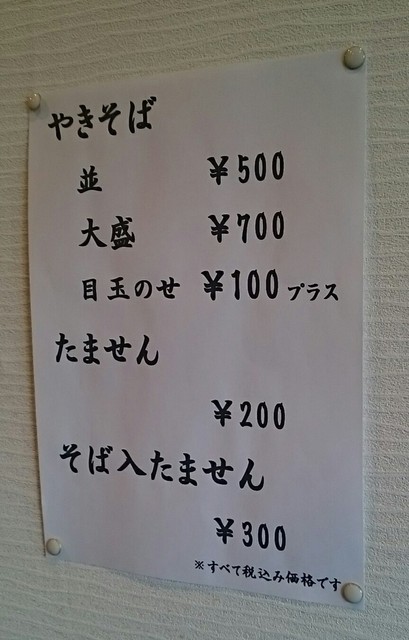 やきそば
並 ¥500
大盛 ¥700
目玉のせ ¥100プラス
たません
¥200
そば入たません
¥300
※すべて税込み価格です